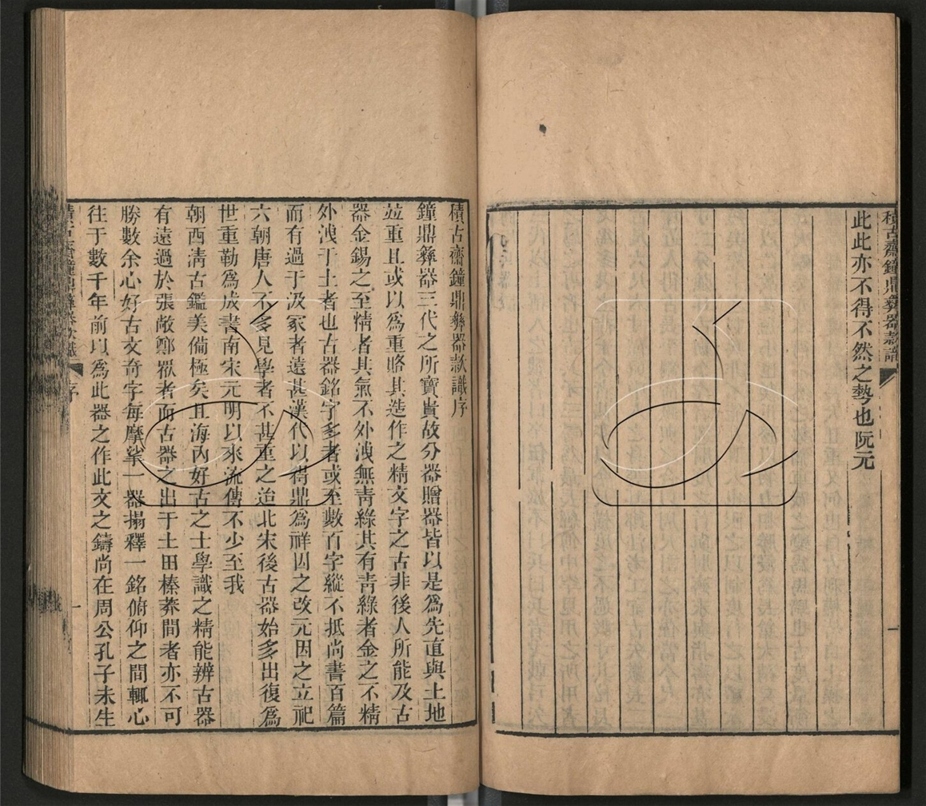 積古齋鐘鼎彝器款識
此此亦不得不然之勢也阮元
積古齋鐘鼎彝器款識序
鐘鼎彝器三代之所寶貴故分器贈器皆以是爲先直與土地
竝重且或以爲重賂其造作之精文字之古非後人所能及古
器金錫之至精者其氣不外洩無青綠其有青綠者金之不精
外洩于土者也古器銘字多者或至數百字縱不抵尚書百篇
而有過于汲冢者遠甚漢代以得鼎爲祥因之改元因之立祀
六朝唐人不多見學者不甚重之迨北宋後古器始多出復爲
世重勒爲成書南宋元明以來流傳不少至我
朝西清古鑑美備極矣且海內好古之士學識之精能辨古器
有遠過於張敞鄭眾者而古器之出于土田榛莽間者亦不可
勝數余心好古文奇字每摩挲一器搨釋一銘俯仰之間輒心
往于數千年前以爲此器之作此文之鑄尚在周公孔子未生
積古齋鐘鼎彝器款識 序 一